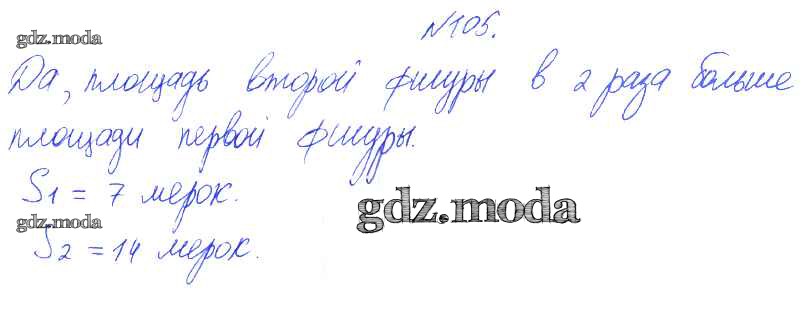 №105.
gdz.moda
Да, площадь второй фигуры в 2 раза больше
площади первой фигуры.
S1 = 7 мерок.
gdz.moda
gdz.moda
S2 = 14 мерок.